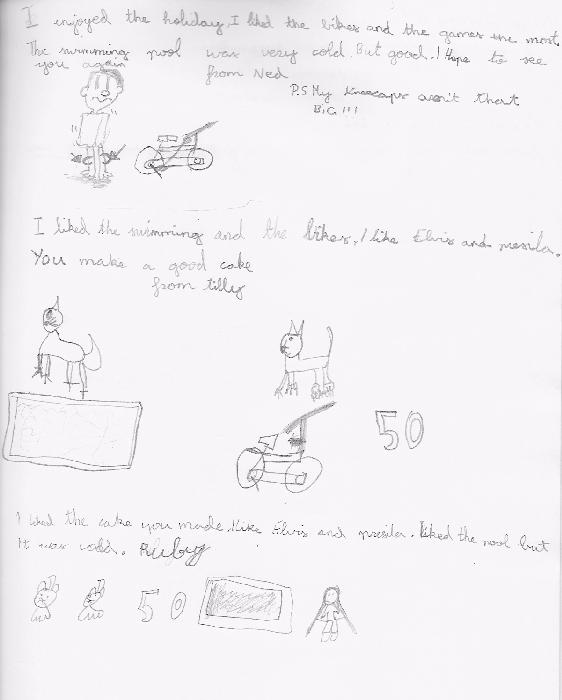 I enjoyed the holiday, I liked the bikes and the games the most.
The swimming pool was very cold. But good. I Hope to see
you again
from Ned
P.S My kneecaps aren't that
BIG!!!
I liked the swimming and the bikes, I like Elvis and presila.
You make a good cake
from tilly
50
I liked the cake you made. I like Elvis and presila. liked the pool but
It was cold. Ruby
50